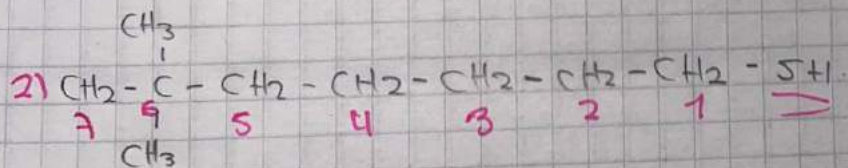 CH3
2) CH2 - C - CH2 - CH2 - CH2 - CH2 - CH2 - SH
7 6 5 4 3 2 1
CH3